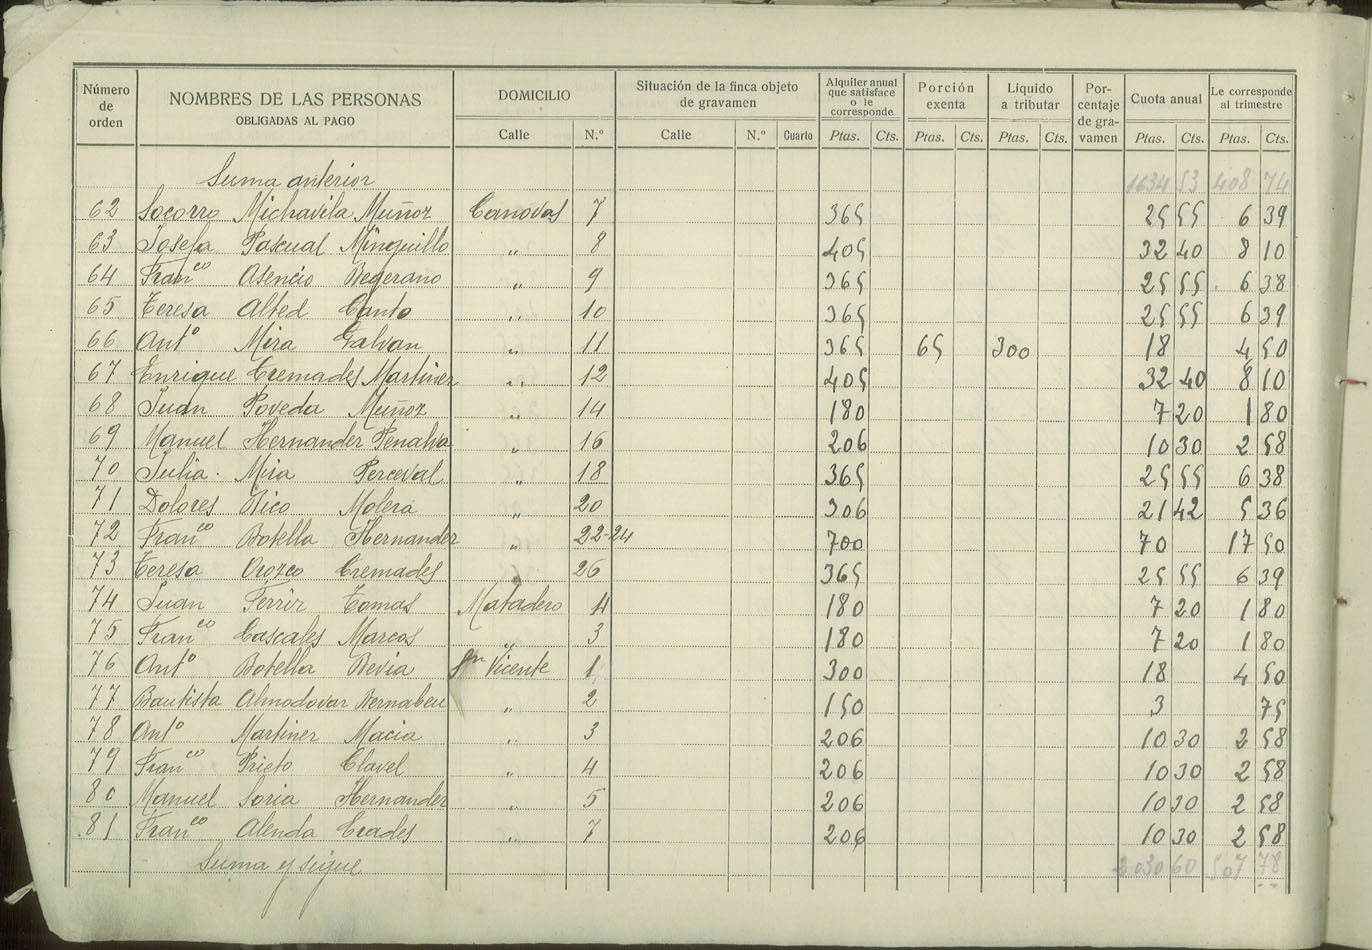 Número de orden NOMBRES DE LAS PERSONAS OBLIGADAS AL PAGO DOMICILIO Situación de la finca objeto de gravamen Alquiler anual que satisface o le corresponde Porción exenta Líquido a tributar Por-centaje de gra-vamen Cuota anual Le corresponde al trimestre
Calle N.º Calle N.º Cuarto Ptas. Cts. Ptas. Cts. Ptas. Cts. Ptas. Cts. Ptas. Cts.
Suma anterior 1634 53 408 74
62 Socorro Michavila Muñoz Canovas 7 365 25 55 6 39
63 Josefa Pascual Minguillo " 8 405 32 40 8 10
64 Franco Asencio Begerano " 9 365 25 55 6 38
65 Teresa Alted Canto " 10 365 25 55 6 39
66 Anto Mira Galvan " 11 365 65 300 18 4 50
67 Enrique Cremades Martinez " 12 405 32 40 8 10
68 Juan Poveda Muñoz " 14 180 7 20 1 80
69 Manuel Hernandez Penalva " 16 206 10 30 2 58
70 Julia Mira Perceval " 18 365 25 55 6 38
71 Dolores Rico Molera " 20 306 21 42 5 36
72 Franco Botella Hernandez " 22-24 700 70 17 50
73 Teresa Orozco Cremades " 26 365 25 55 6 39
74 Juan Ferriz Tomas Matadero 4 180 7 20 1 80
75 Franco Cascales Marcos " 3 180 7 20 1 80
76 Anto Botella Bevia Sn Vicente 1 300 18 4 50
77 Bautista Almodovar Bernabeu " 2 150 3 75
78 Anto Martinez Macia " 3 206 10 30 2 58
79 Franco Prieto Clavel " 4 206 10 30 2 58
80 Manuel Soria Hernandez " 5 206 10 30 2 58
81 Franco Alenda Crades " 7 206 10 30 2 58
Suma y sigue 2030 60 507 78